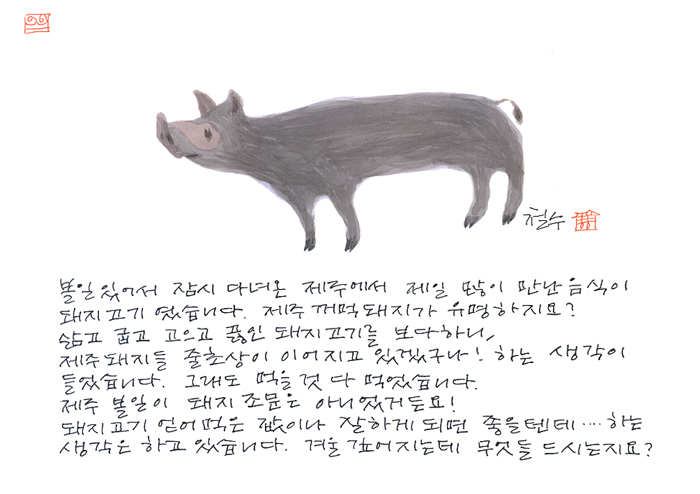 철수
볼일 있어서 잠시 다녀온 제주에서 제일 많이 만난 음식이
돼지고기 였습니다. 제주 꺼먹돼지가 유명하지요?
삶고 굽고 고으고 끓인 돼지고기를 보다하니,
제주돼지들 줄초상이 이어지고 있겠구나! 하는 생각이
들었습니다. 그래도 먹을 것 다 먹었습니다.
제주 볼일이 돼지 조문은 아니었거든요!
돼지고기 얻어먹은 값이나 잘하게 되면 좋을텐데····하는
생각은 하고 있습니다. 겨울 깊어지는데 무엇들 드시는지요?